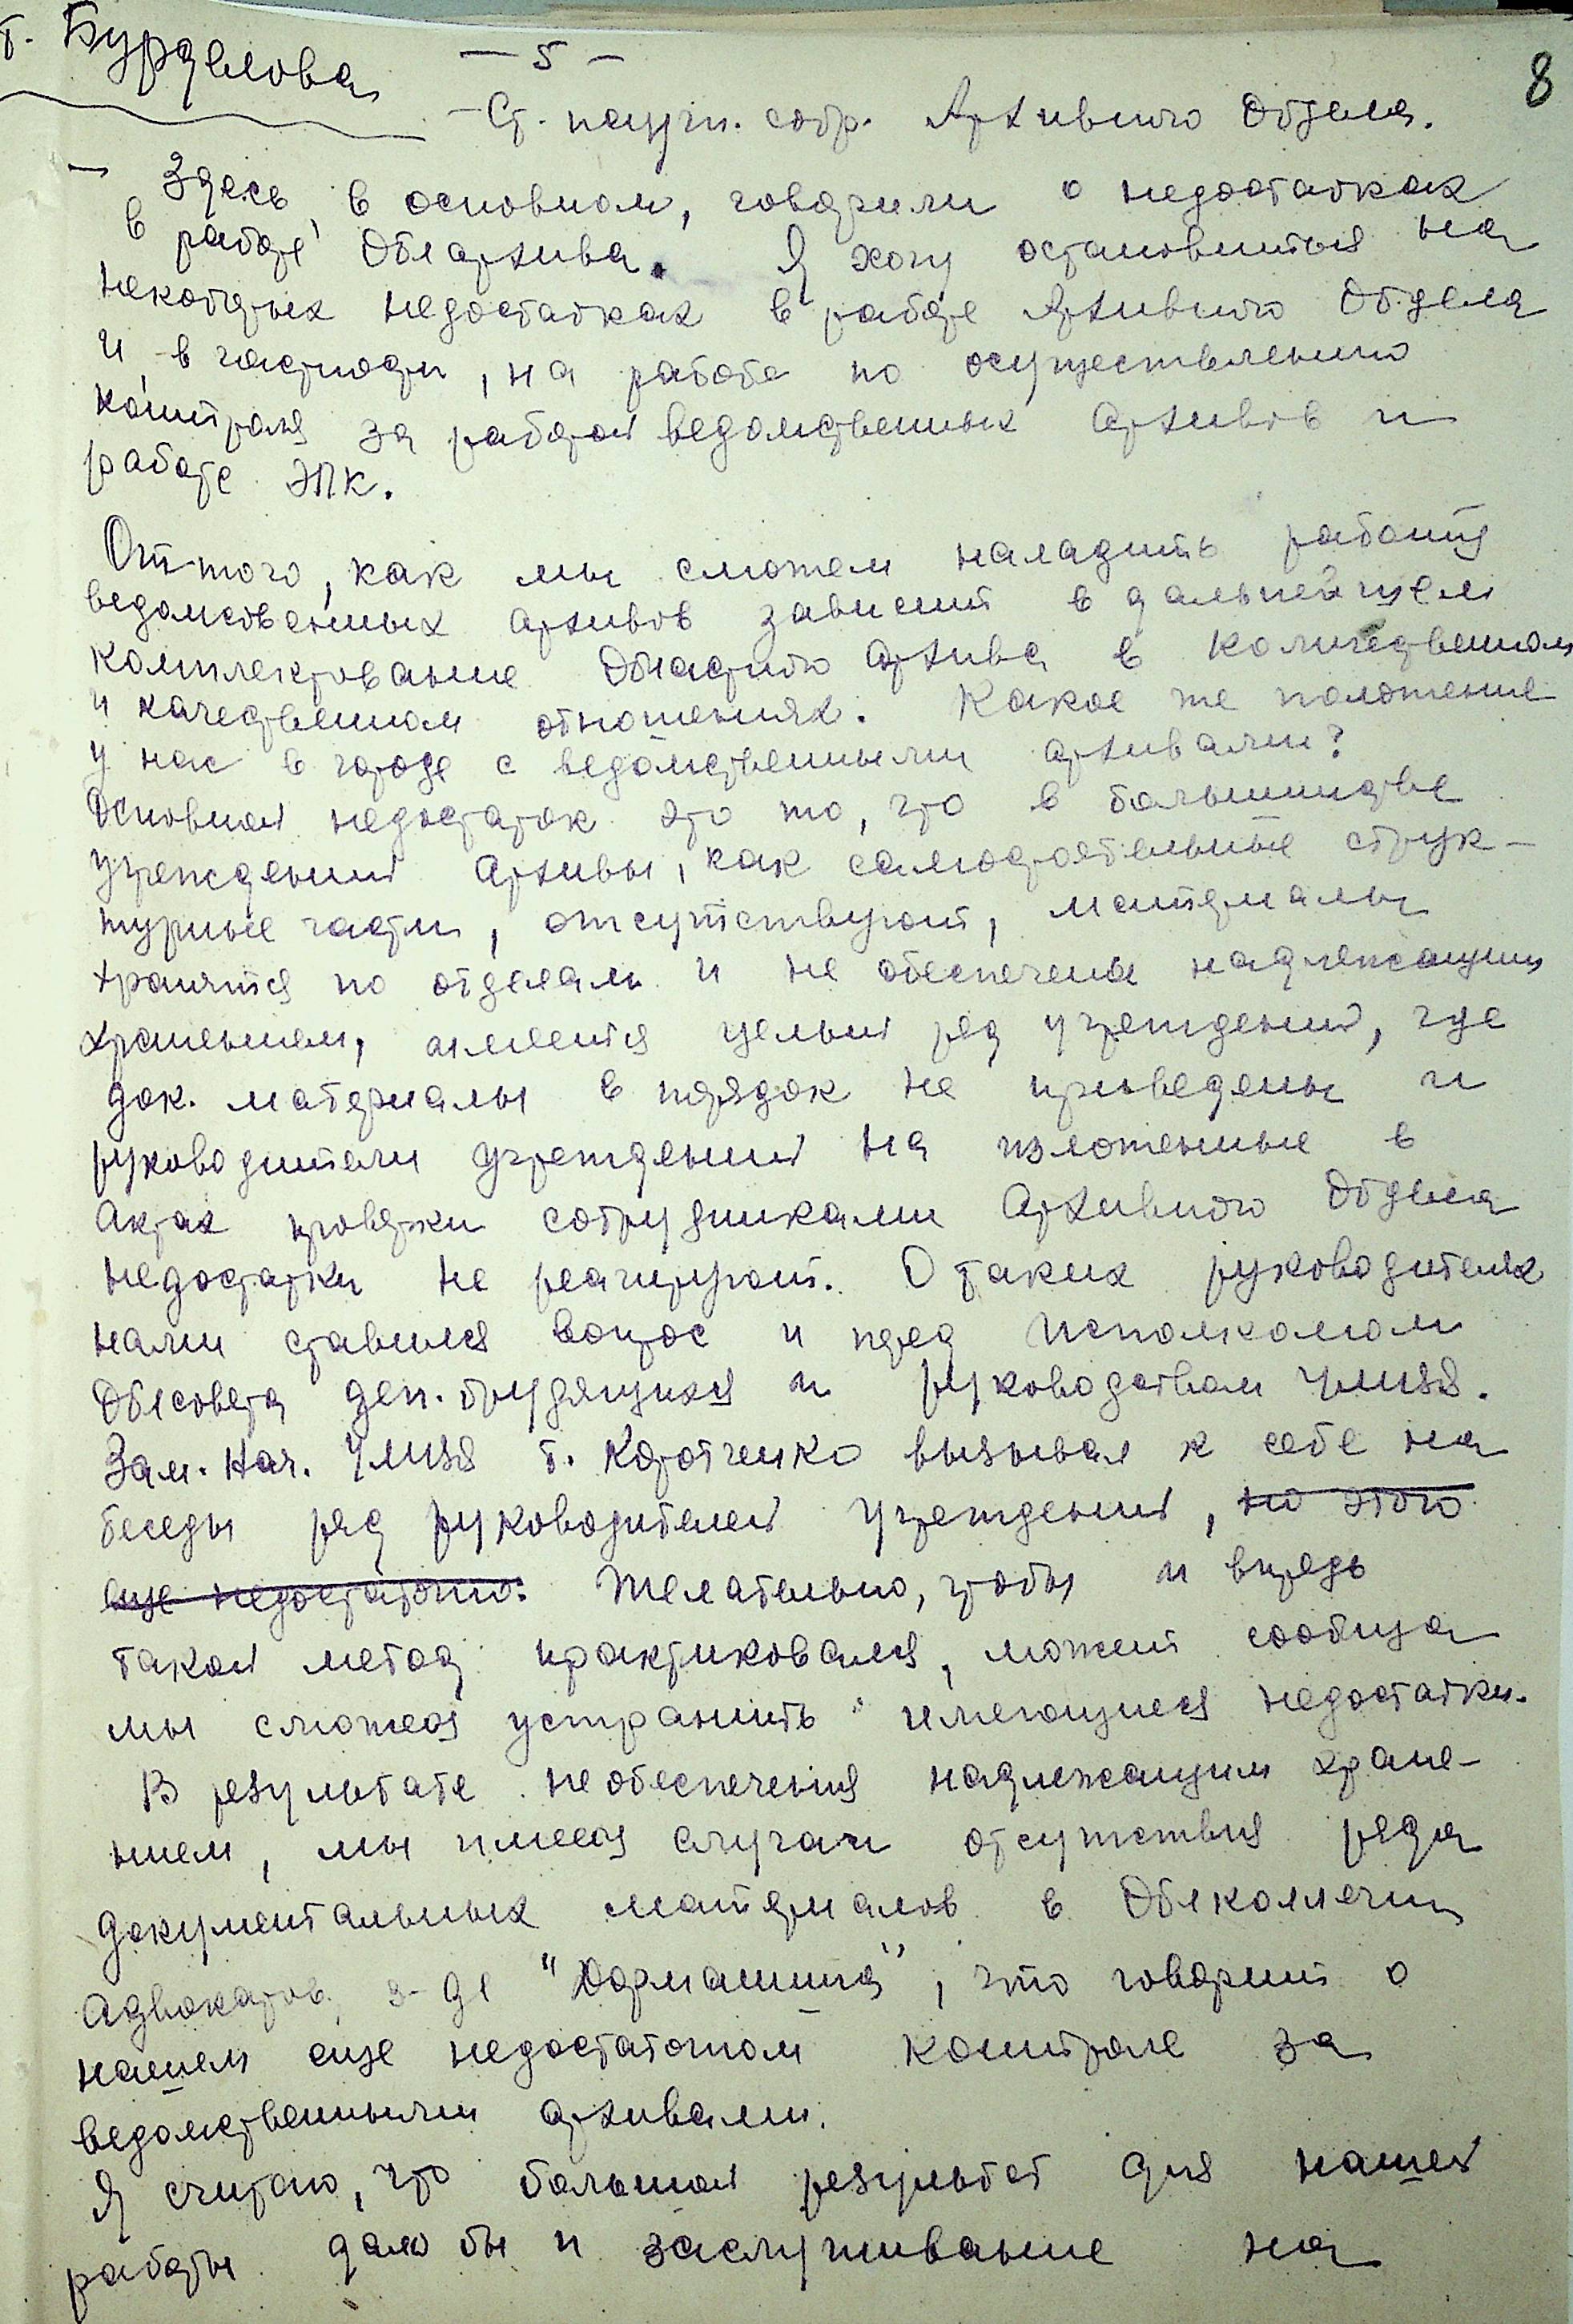 т. Бурдыгова
— 5 —
8
— Ст. научн. сотр. Архивного Отдела.
— Здесь, в основном, говорили о недостатках
в работе Облархива. Я хочу остановиться на
некоторых недостатках в работе Архивного Отдела
и, в частности, на работе по осуществлению
контроля за работой ведомственных архивов и
работе ЭПК.
От того, как мы сможем наладить работу
ведомственных архивов зависит в дальнейшем
комплектование Областного архива в количественном
и качественном отношениях. Какое же положение
у нас в городе с ведомственными архивами?
Основной недостаток это то, что в большинстве
учреждений архивы, как самостоятельные струк-
турные части, отсутствуют, материалы
хранятся по отделам и не обеспечены надлежащим
хранением, имеется целый ряд учреждений, где
док. материалы в порядок не приведены и
руководители учреждений на изложенные в
актах проверки сотрудниками Архивного Отдела
недостатки не реагируют. О таких руководителях
нами ставился вопрос и пред Исполкомом
Облсовета деп. трудящихся и руководством УМВД.
Зам. Нач. УМВД т. Коротченко вызывал к себе на
беседы ряд руководителей учреждений, но этого
еще недостаточно. Желательно, чтобы и впредь
такой метод практиковался, может сообща
мы сможем устранить имеющиеся недостатки.
В результате необеспечения надлежащим хране-
нием, мы имеем случаи отсутствия ряда
документальных материалов в Облколлегии
адвокатов, з-де "Дормашина", что говорит о
нашем еще недостаточном контроле за
ведомственными архивами.
Я считаю, что большой результат для нашей
работы дало бы и заслушивание на